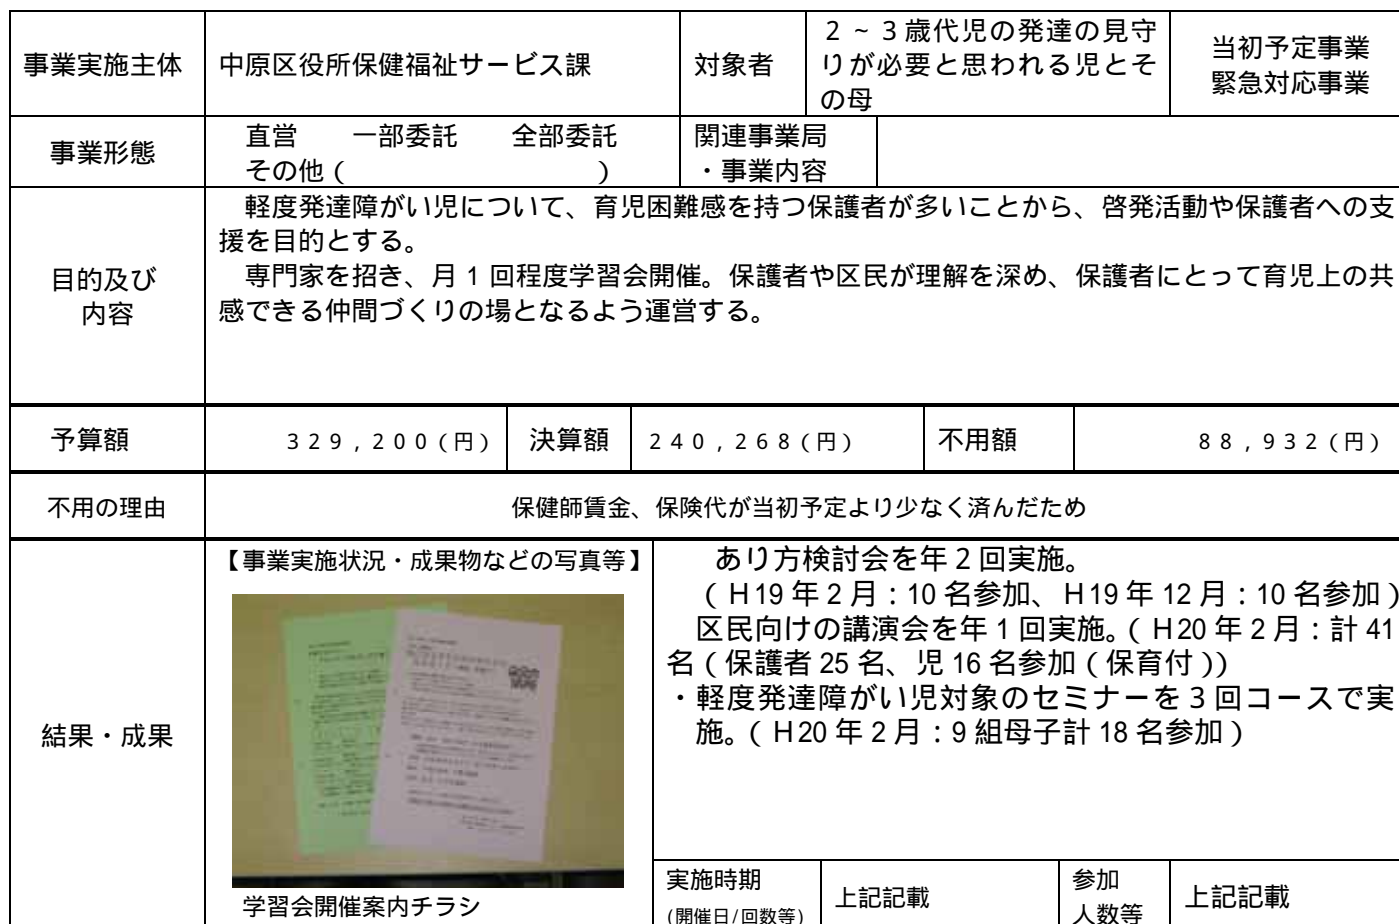 事業実施主体
中原区役所保健福祉サービス課
対象者
２～３歳代児の発達の見守
りが必要と思われる児とそ
の母
当初予定事業
緊急対応事業
事業形態
直営　　一部委託　　全部委託
その他（　　　　　　　　　　）
関連事業局
・事業内容
目的及び
内容
軽度発達障がい児について、育児困難感を持つ保護者が多いことから、啓発活動や保護者への支
援を目的とする。
専門家を招き、月1回程度学習会開催。保護者や区民が理解を深め、保護者にとって育児上の共
感できる仲間づくりの場となるよう運営する。
予算額
３２９，２００(円)
決算額
２４０，２６８(円)
不用額
８８，９３２(円)
不用の理由
保健師賃金、保険代が当初予定より少なく済んだため
結果・成果
【事業実施状況・成果物などの写真等】
学習会開催案内チラシ
あり方検討会を年2回実施。
（H19年2月：10名参加、H19年12月：10名参加）
区民向けの講演会を年1回実施。（H20年2月：計41
名（保護者25名、児16名参加（保育付））
・軽度発達障がい児対象のセミナーを3回コースで実
施。（H20年2月：9組母子計18名参加）
実施時期
(開催日/回数等)
上記記載
参加
人数等
上記記載